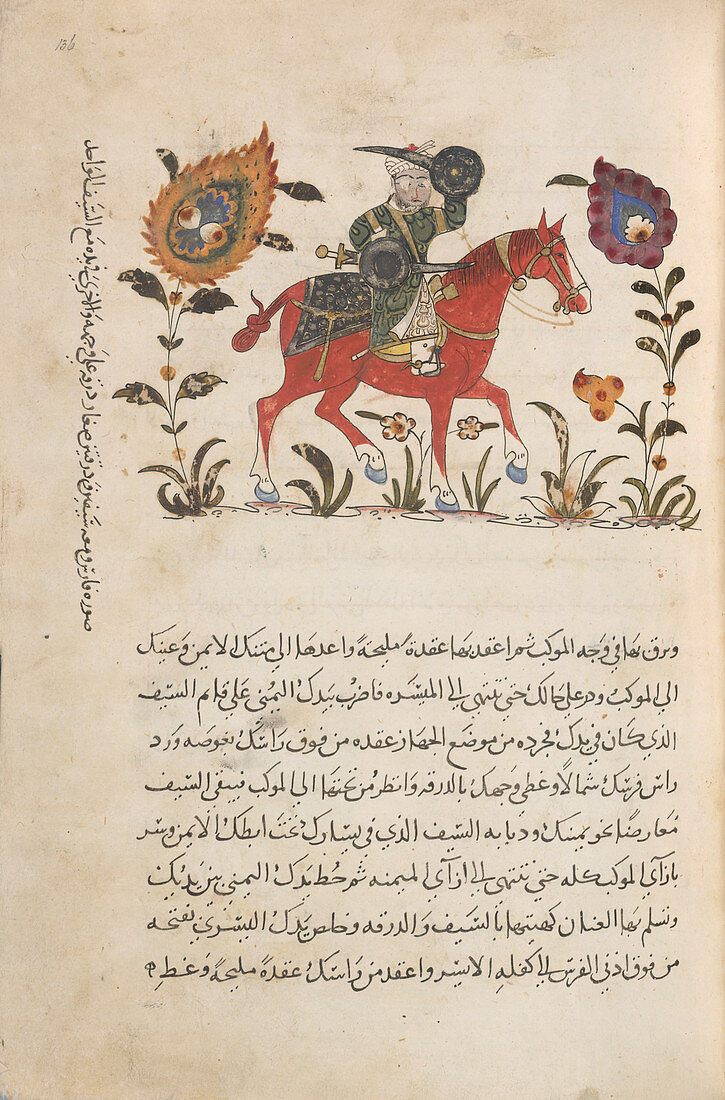 136
صوره فارس ومعه سيفين ودرقتين صغار درقه على وجهه والاخرى في يده مع السيف الواحد
وبرق بها في وجه الموكب ثم اعقد بها عقدة مليحة واعدها الي متنك الايمن وعينك
الي الموكب ودر علي حالك حتي تنتهي الي الميسره فاضرب بيدك اليمني علي قايم السيف
الذي كان في يدك فجرده من موضع الجهاز عقده من فوق راسك بغوصه ورد
راس فرسك شمالا وغطي وجهك بالدرقه وانظر من تحتها الي الموكب فيبقي السيف
معارضا نحو يمينك ودبابه السيف الذي في يسارك تحت ابطك الايمن وسر
بازآي الموكب كله حتي تنتهي الي ازآي الميمنه ثم حط يدك اليمني بين يديك
وتسلم بها العنان كهيتها بالسيف والدرقه وخلص يدك اليسري بفتحه
من فوق اذني الفرس الي كفله الايسر واعقد من راسك عقدة مليحة وغط